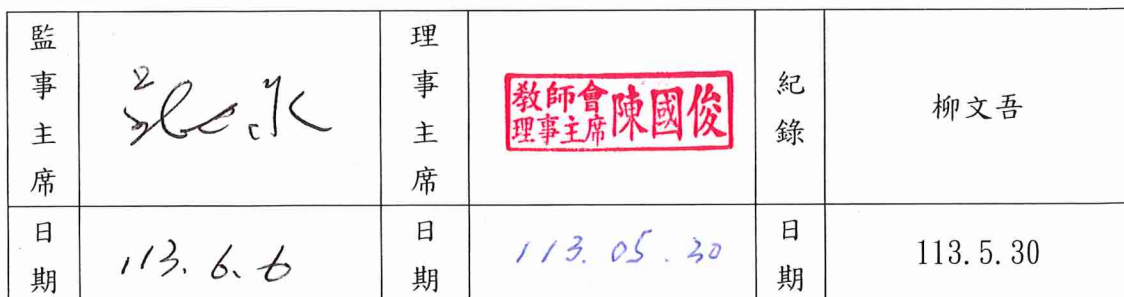 監事主席
理事主席
教師會
理事主席
陳國俊
紀錄
柳文吾
日期
113.6.6
日期
113.05.30
日期
113.5.30